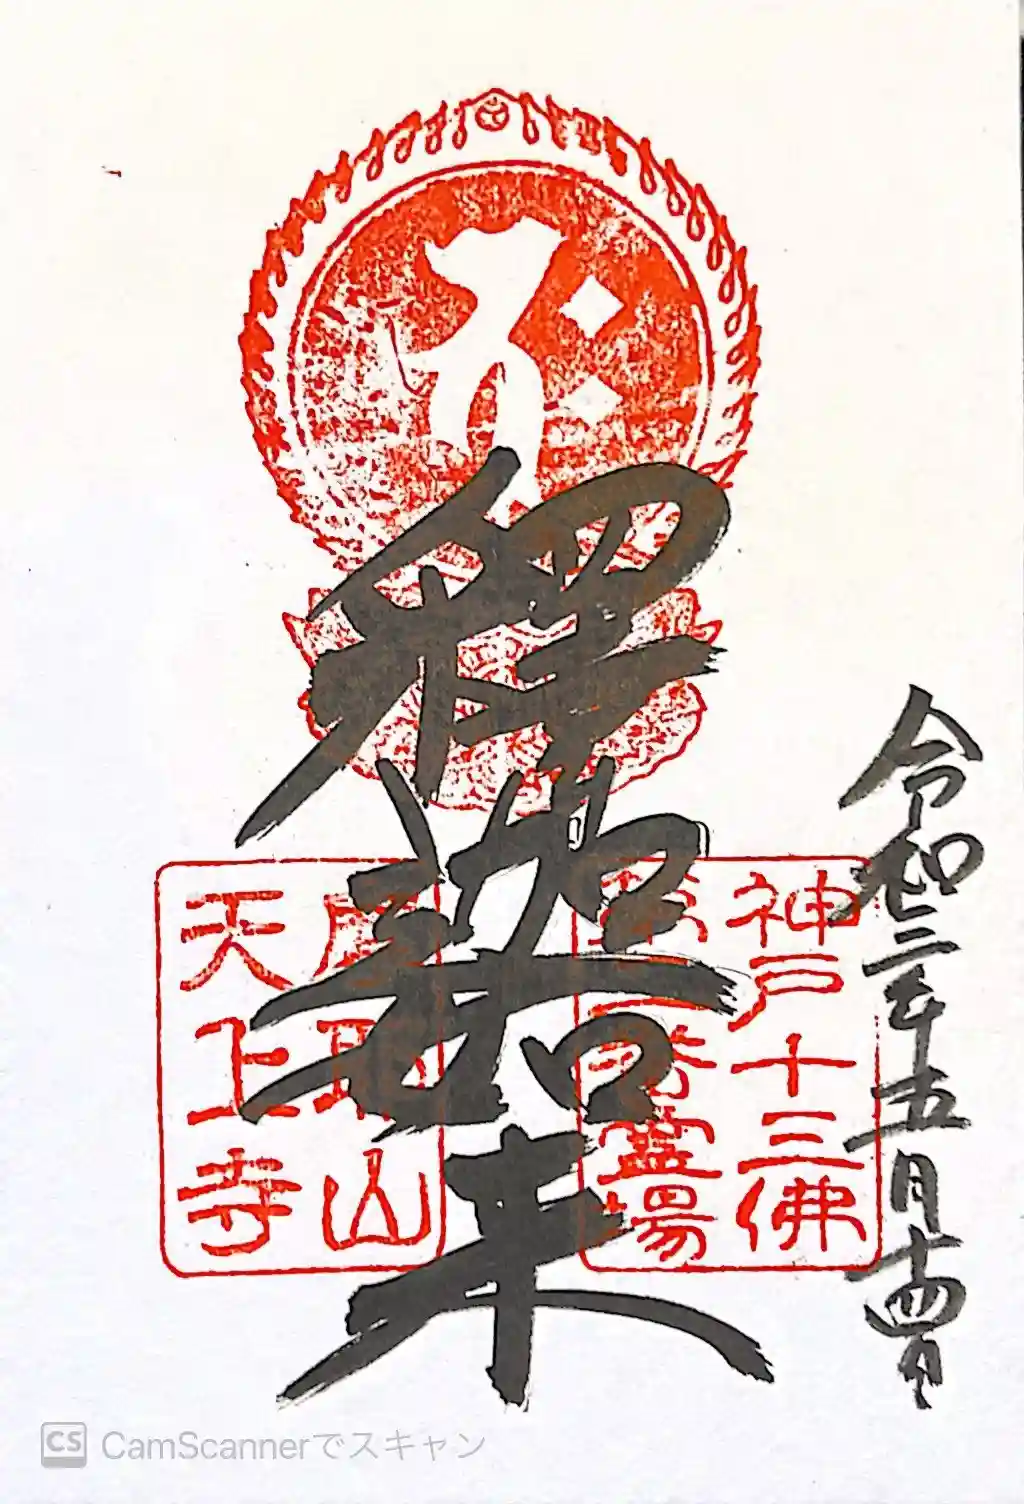 𑖥𑖾
令和三年五月十四日
神戸十三佛
第二番霊場
釋迦如来
摩耶山
天上寺
CS CamScannerでスキャン